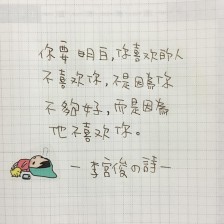 你要明白，你喜欢的人
不喜欢你，不是因為你
不夠好，而是因為
他不喜欢你。
— 李宫俊の詩 —